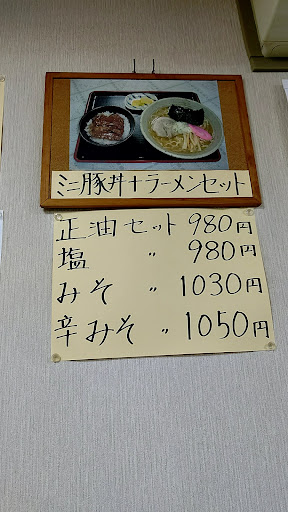 ミニ豚丼+ラーメンセット
正油セット 980円
塩 〃 980円
みそ 〃 1030円
辛みそ 〃 1050円